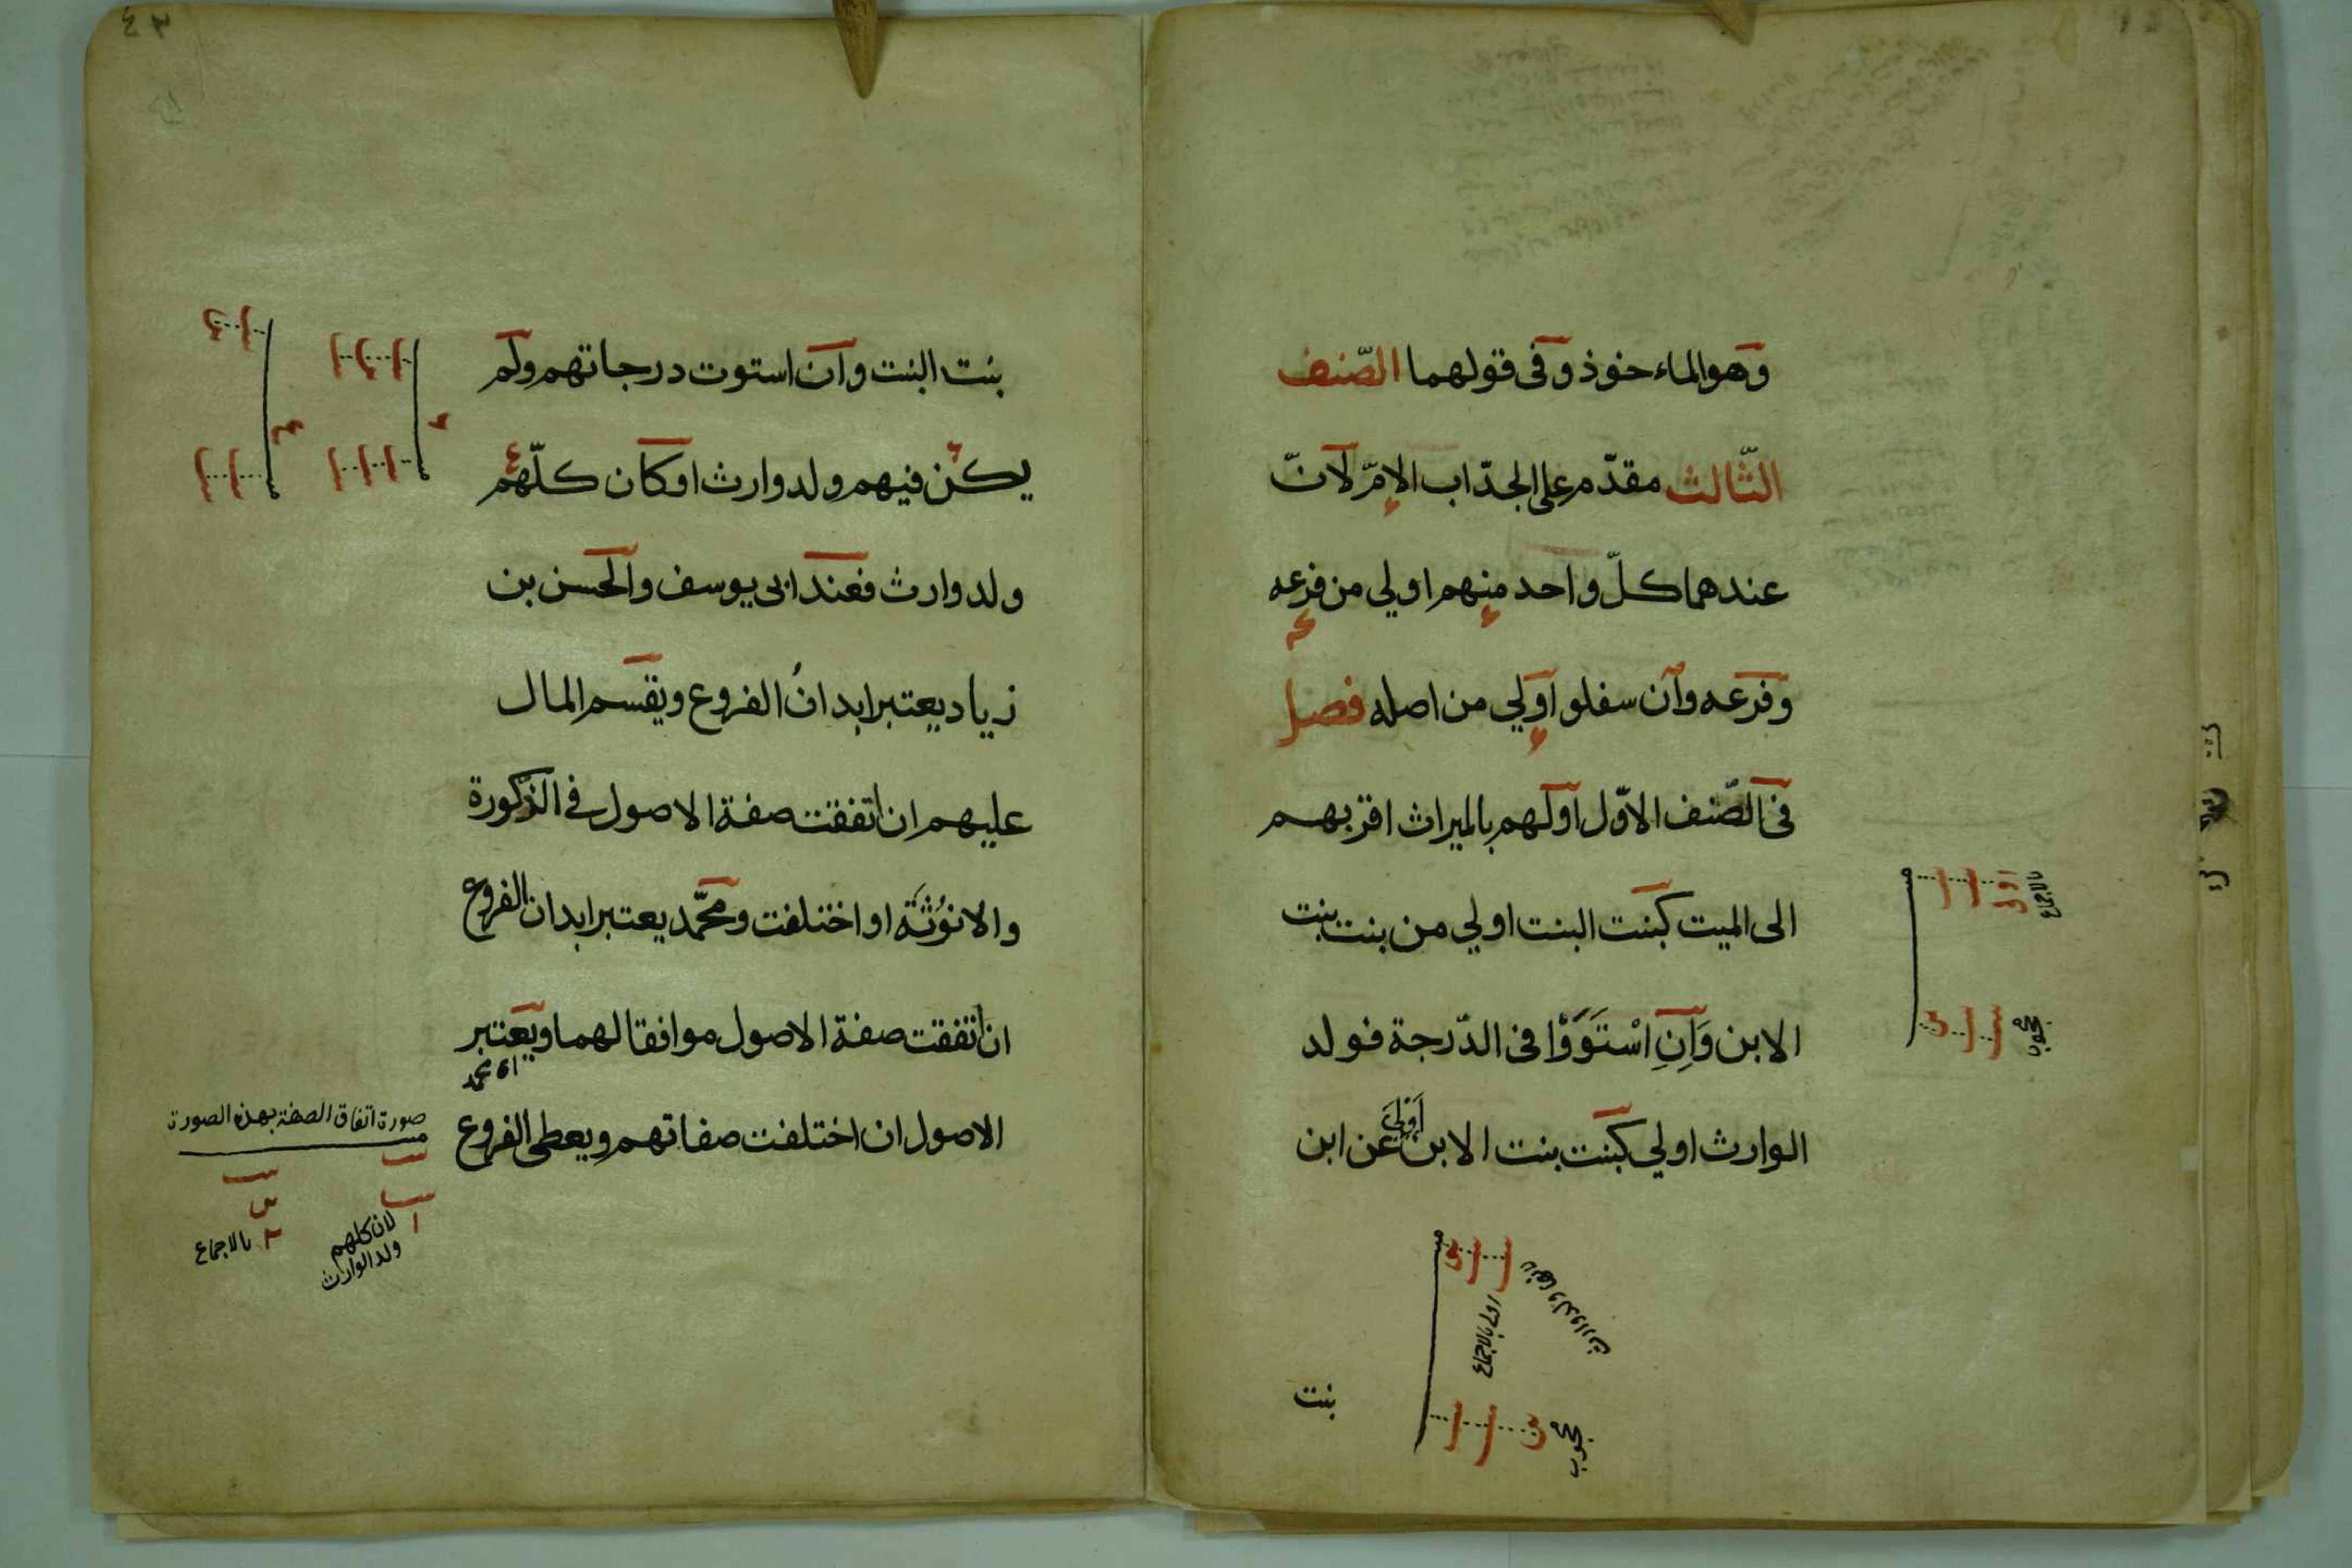 وهو الماءخوذ وفى قولهما الصّنف
الثّالث مقدّم على الجدّ اب الامّ لانّ
عندهما كلّ واحد منهم اولي من فرعه
وفرعه وان سفلوا ولي من اصله فصل
فى الصّنف الاوّل اولهم بالميراث اقربهم
الى الميت كبنت البنت اولي من بنت بنت
الابن وَاِنِ اسْتَوَوْا فى الدّرجة فولد
الوارث اولي كبنت بنت الابن اَوْلَي عن ابن
بالاجماع
محجوب
لانها ولد الوارث
اولى بالاجماع
محجوب
بنت
٤٣
بنت البنت وان استوت درجاتهم ولم
يكن فيهم ولد وارث اوكان كلّهم
ولد وارث فعند ابى يوسف والحسن بن
زياد يعتبر ابدانُ الفروع ويقسم المال
عليهم ان اتفقت صفة الاصول في الذّكورة
والانوُثَة او اختلفت ومحمّد يعتبر ابدان الفروع
ان اتفقت صفة الاصول موافقا لهما ويعتبر
اى محمد
الاصول ان اختلفت صفاتهم ويعطى الفروع
صورة اتفاق الصفة بهذه الصورة
لان كلهم
ولد الوارث
بالاجماع